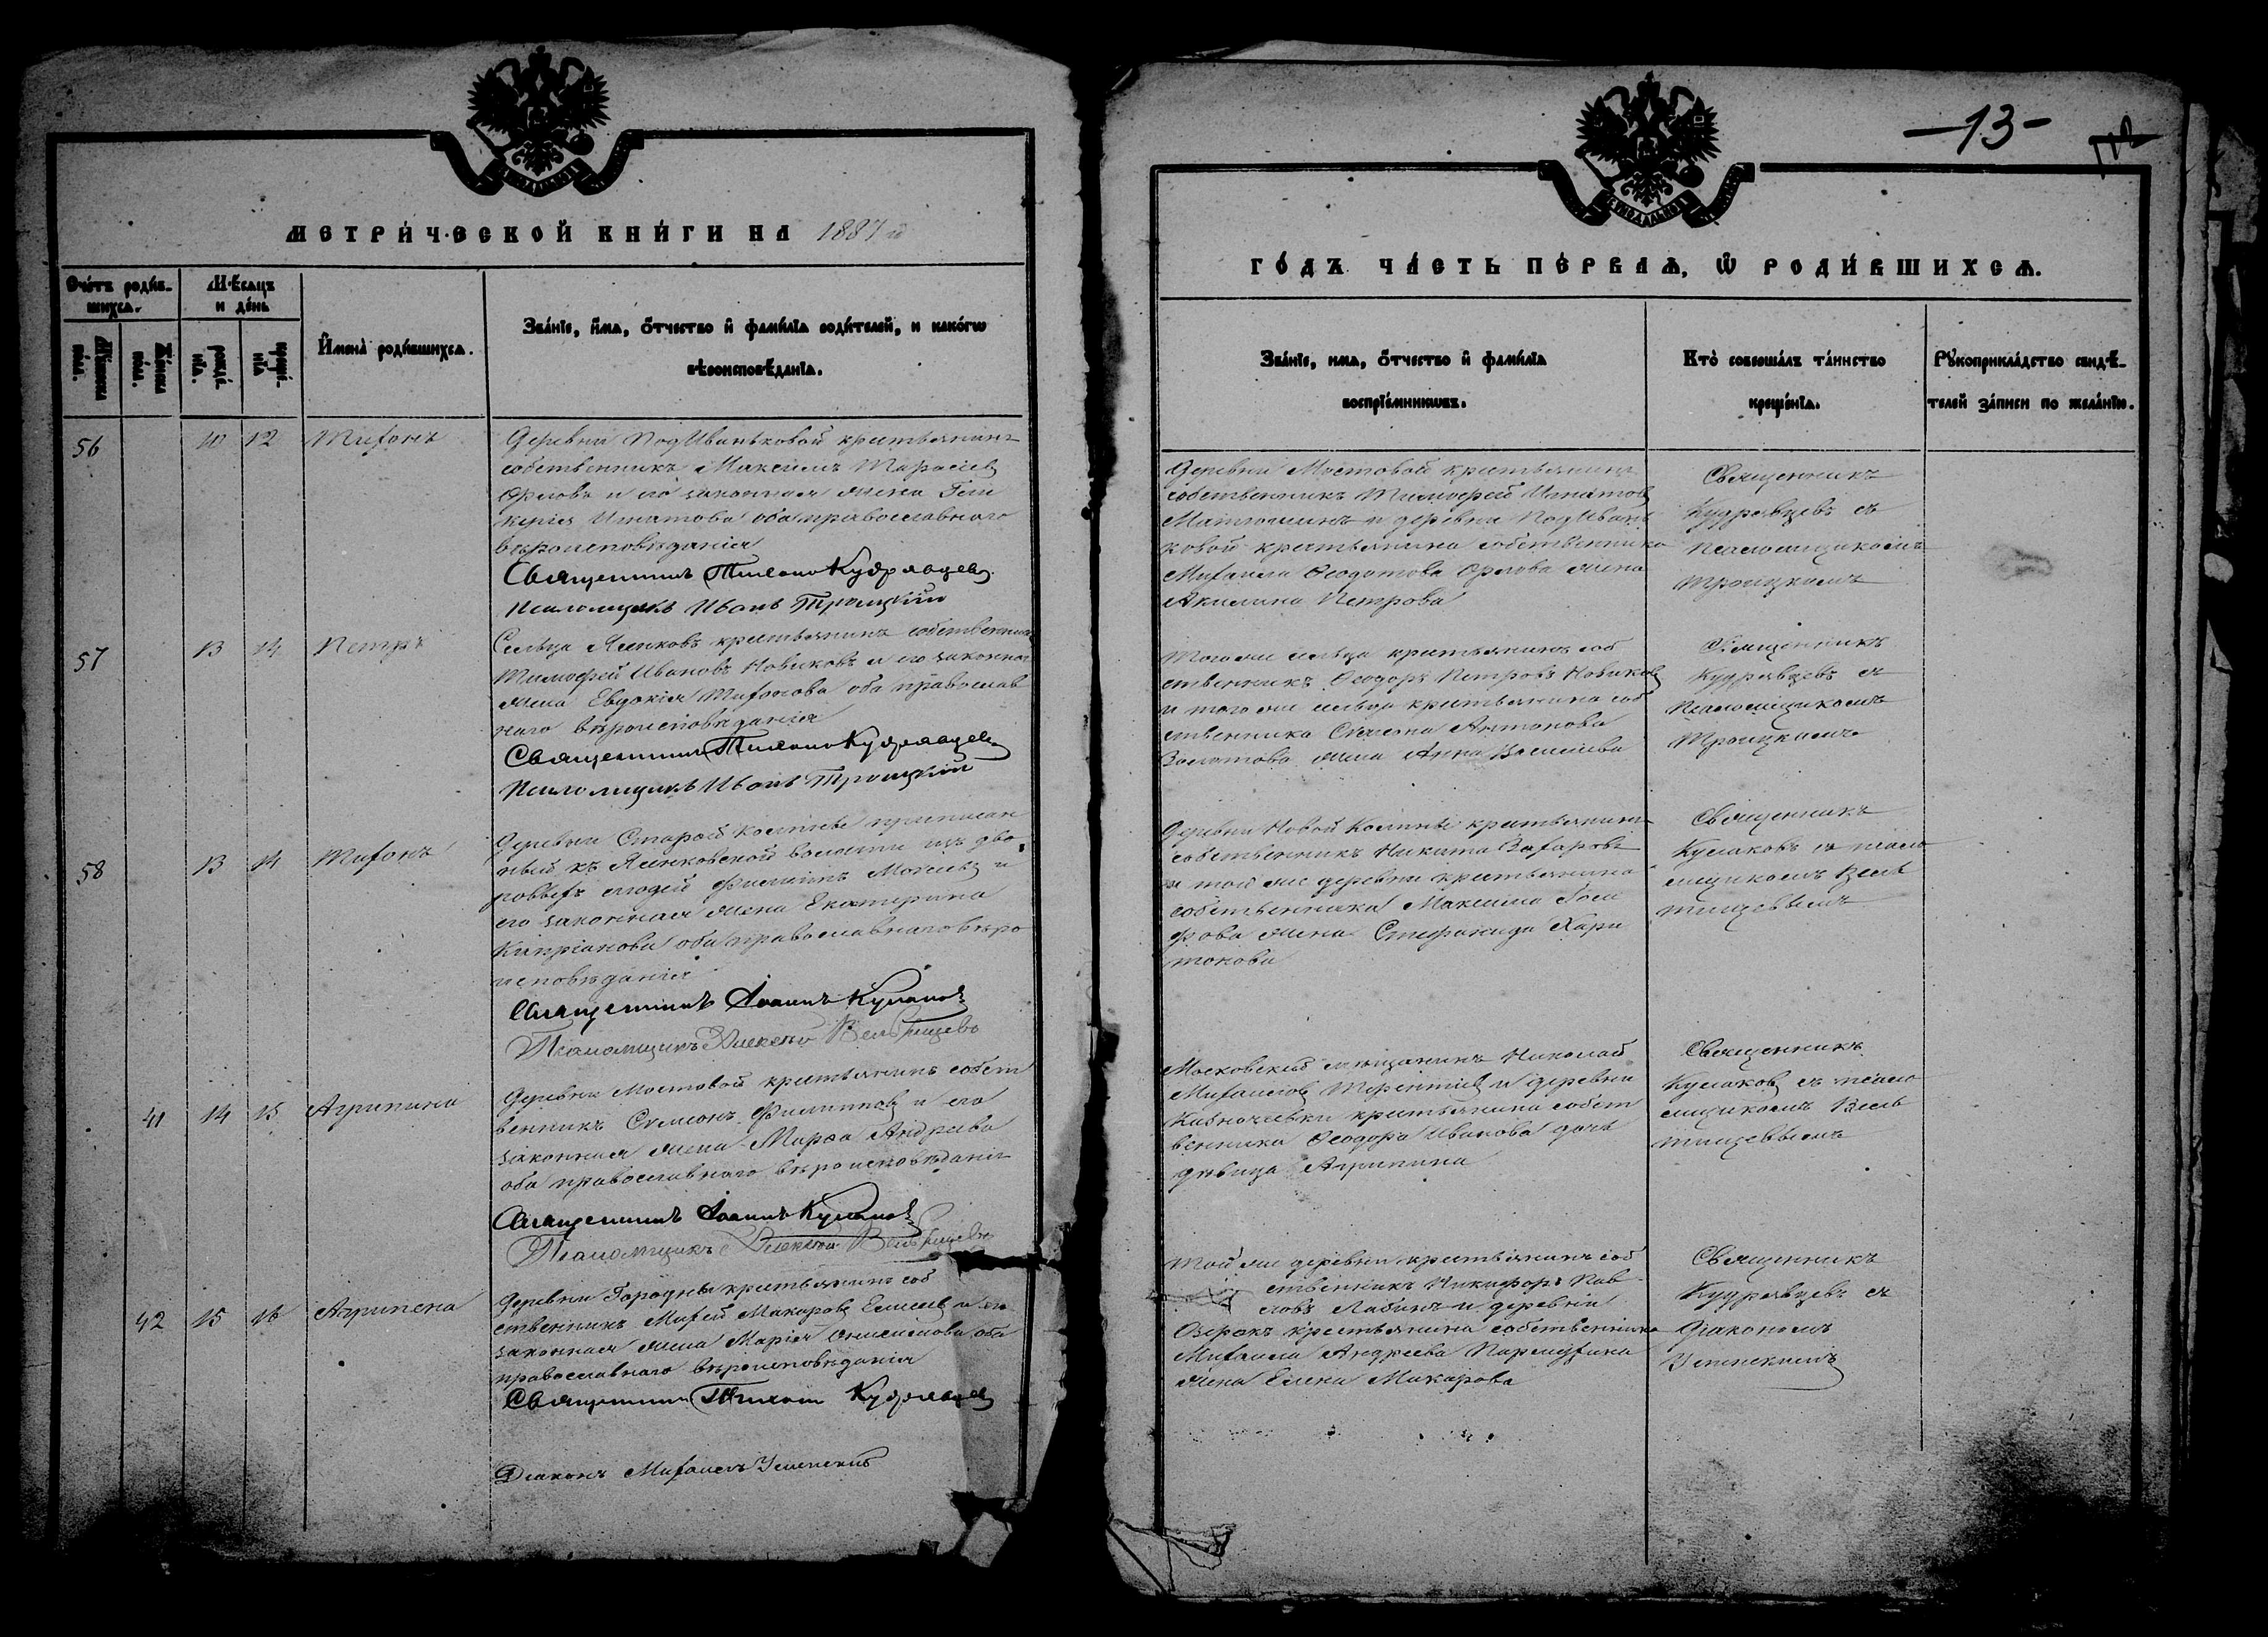 МЕТРИЧЕСКОЙ КНИГИ НА 1887 й
Счетъ родив-
шихся.
Мѣсяцъ
и день
Имена родившихся.
Званіе, имя, отчество и фамилія родителей, и какого
вѣроисповѣданія.
Мужеска
пола.
Женска
пола.
рожде-
нія.
креще-
нія
56 10 12 Тихонъ
Деревни Подъиваньковой крестьянинъ
собственникъ Максимъ Тарасіевъ
Орловъ и его законная жена Гли
керія Игнатова оба православнаго
вѣроисповѣданія
Священникъ Тихонъ Кудрявцевъ
Псаломщикъ Иванъ Троицкій
57 13 14 Петръ
Сельца Ясенковъ крестьянинъ собственникъ
Тимофей Ивановъ Новиковъ и его законная
жена Евдокія Тихонова оба православ
наго вѣроисповѣданія
Священникъ Тихонъ Кудрявцевъ
Псаломщикъ Иванъ Троицкій
58 13 14 Тихонъ
Деревни Старой Колпны приписан
ный къ Ясенковской волости изъ дво
ровыхъ людей Филиппъ Моисеевъ и
его законная жена Екатерина
Кипріанова оба православнаго вѣро
исповѣданія
Священникъ Іоаннъ Кулаковъ
Псаломщикъ Алексѣй
41 14 15 Агрипина
Деревни Мостовой крестьянинъ собст
венникъ Сѵмеонъ Филипповъ и его
законная жена Марѳа Андреева
оба православнаго вѣроисповѣданія
Священникъ Іоаннъ Кулаковъ
Псаломщикъ Алексѣй
42 15 16 Агрипена
Деревни Городны крестьянинъ соб
ственникъ Михей Макаровъ Елисеевъ и его
законная жена Марія Онисимова оба
православнаго вѣроисповѣданія
Священникъ Тихонъ Кудрявцевъ
Діаконъ Михаилъ Успенскій
-13-
ГОДЪ ЧАСТЬ ПЕРВАЯ, Ѡ РОДИВШИХСЯ.
Званіе, имя, отчество и фамилія
воспріемниковъ.
Кто совершалъ таинство
крещенія.
Рукоприкладство свидѣ-
телей записи по желанію.
Деревни Мостовой крестьянинъ
собственникъ Тимофей Игнатовъ
Матюшинъ и деревни Подъивань
ковой крестьянина собственника
Михаила Ѳеодотова Орлова жена
Акилина Петрова
Священникъ
Кудрявцевъ съ
псаломщикомъ
Троицкимъ
Тогоже сельца крестьянинъ соб
ственникъ Ѳеодоръ Петровъ Новиковъ
и того же сельца крестьянина соб
ственника Сѵмеона Антонова
жена Анна
Священникъ
Кудрявцевъ съ
Псаломщикомъ
Троицкимъ
Деревни Новой Колпны крестьянинъ
собственникъ Никита Захаровъ
и той же деревни крестьянина
собственника Максима Іоси
фова жена Стефанида Хари
тонова
Священникъ
Кулаковъ съ псало
мщикомъ Вель
тищевымъ
Московскій мѣщанинъ Николай
Михаиловъ Терентіевъ и деревни
Казначеевки крестьянина собст
венника Ѳеодора Иванова дочь
дѣвица Агрипина
Священникъ
Кулаковъ съ псало
мщикомъ Вель
тищевымъ
Той же деревни крестьянинъ соб
ственникъ Никифоръ Пав
ловъ Лабинъ и деревни
Озерокъ крестьянина собственника
Михаила Андреева
жена Елена Макарова
Священникъ
Кудрявцевъ съ
Діакономъ
Успенскимъ